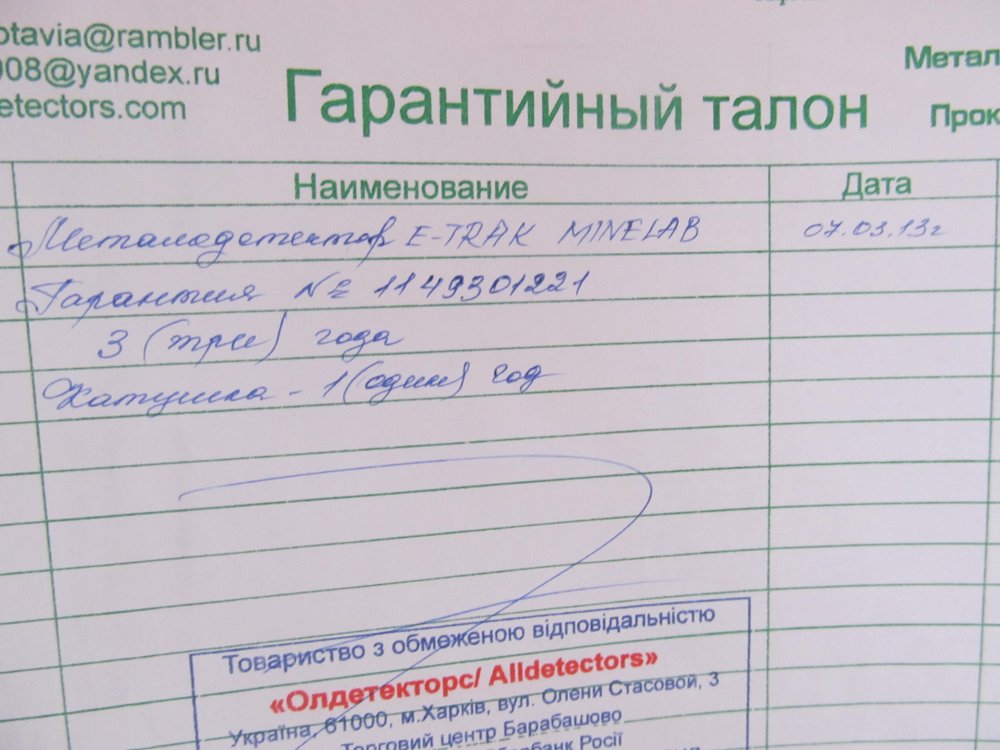 otavia@rambler.ru
008@yandex.ru
etectors.com
Метал
Гарантийный талон
Прок
Наименование Дата
Металодетектор E-TRAK MINELAB 07.03.13г
Гарантия № 1149301221
3 (три) года
Катушка - 1 (один) год
Товариство з обмеженою відповідальністю
«Олдетекторс/ Alldetectors»
Україна, 61000, м.Харків, вул. Олени Стасовой, 3
Торговий центр Барабашово
рбанк Росії